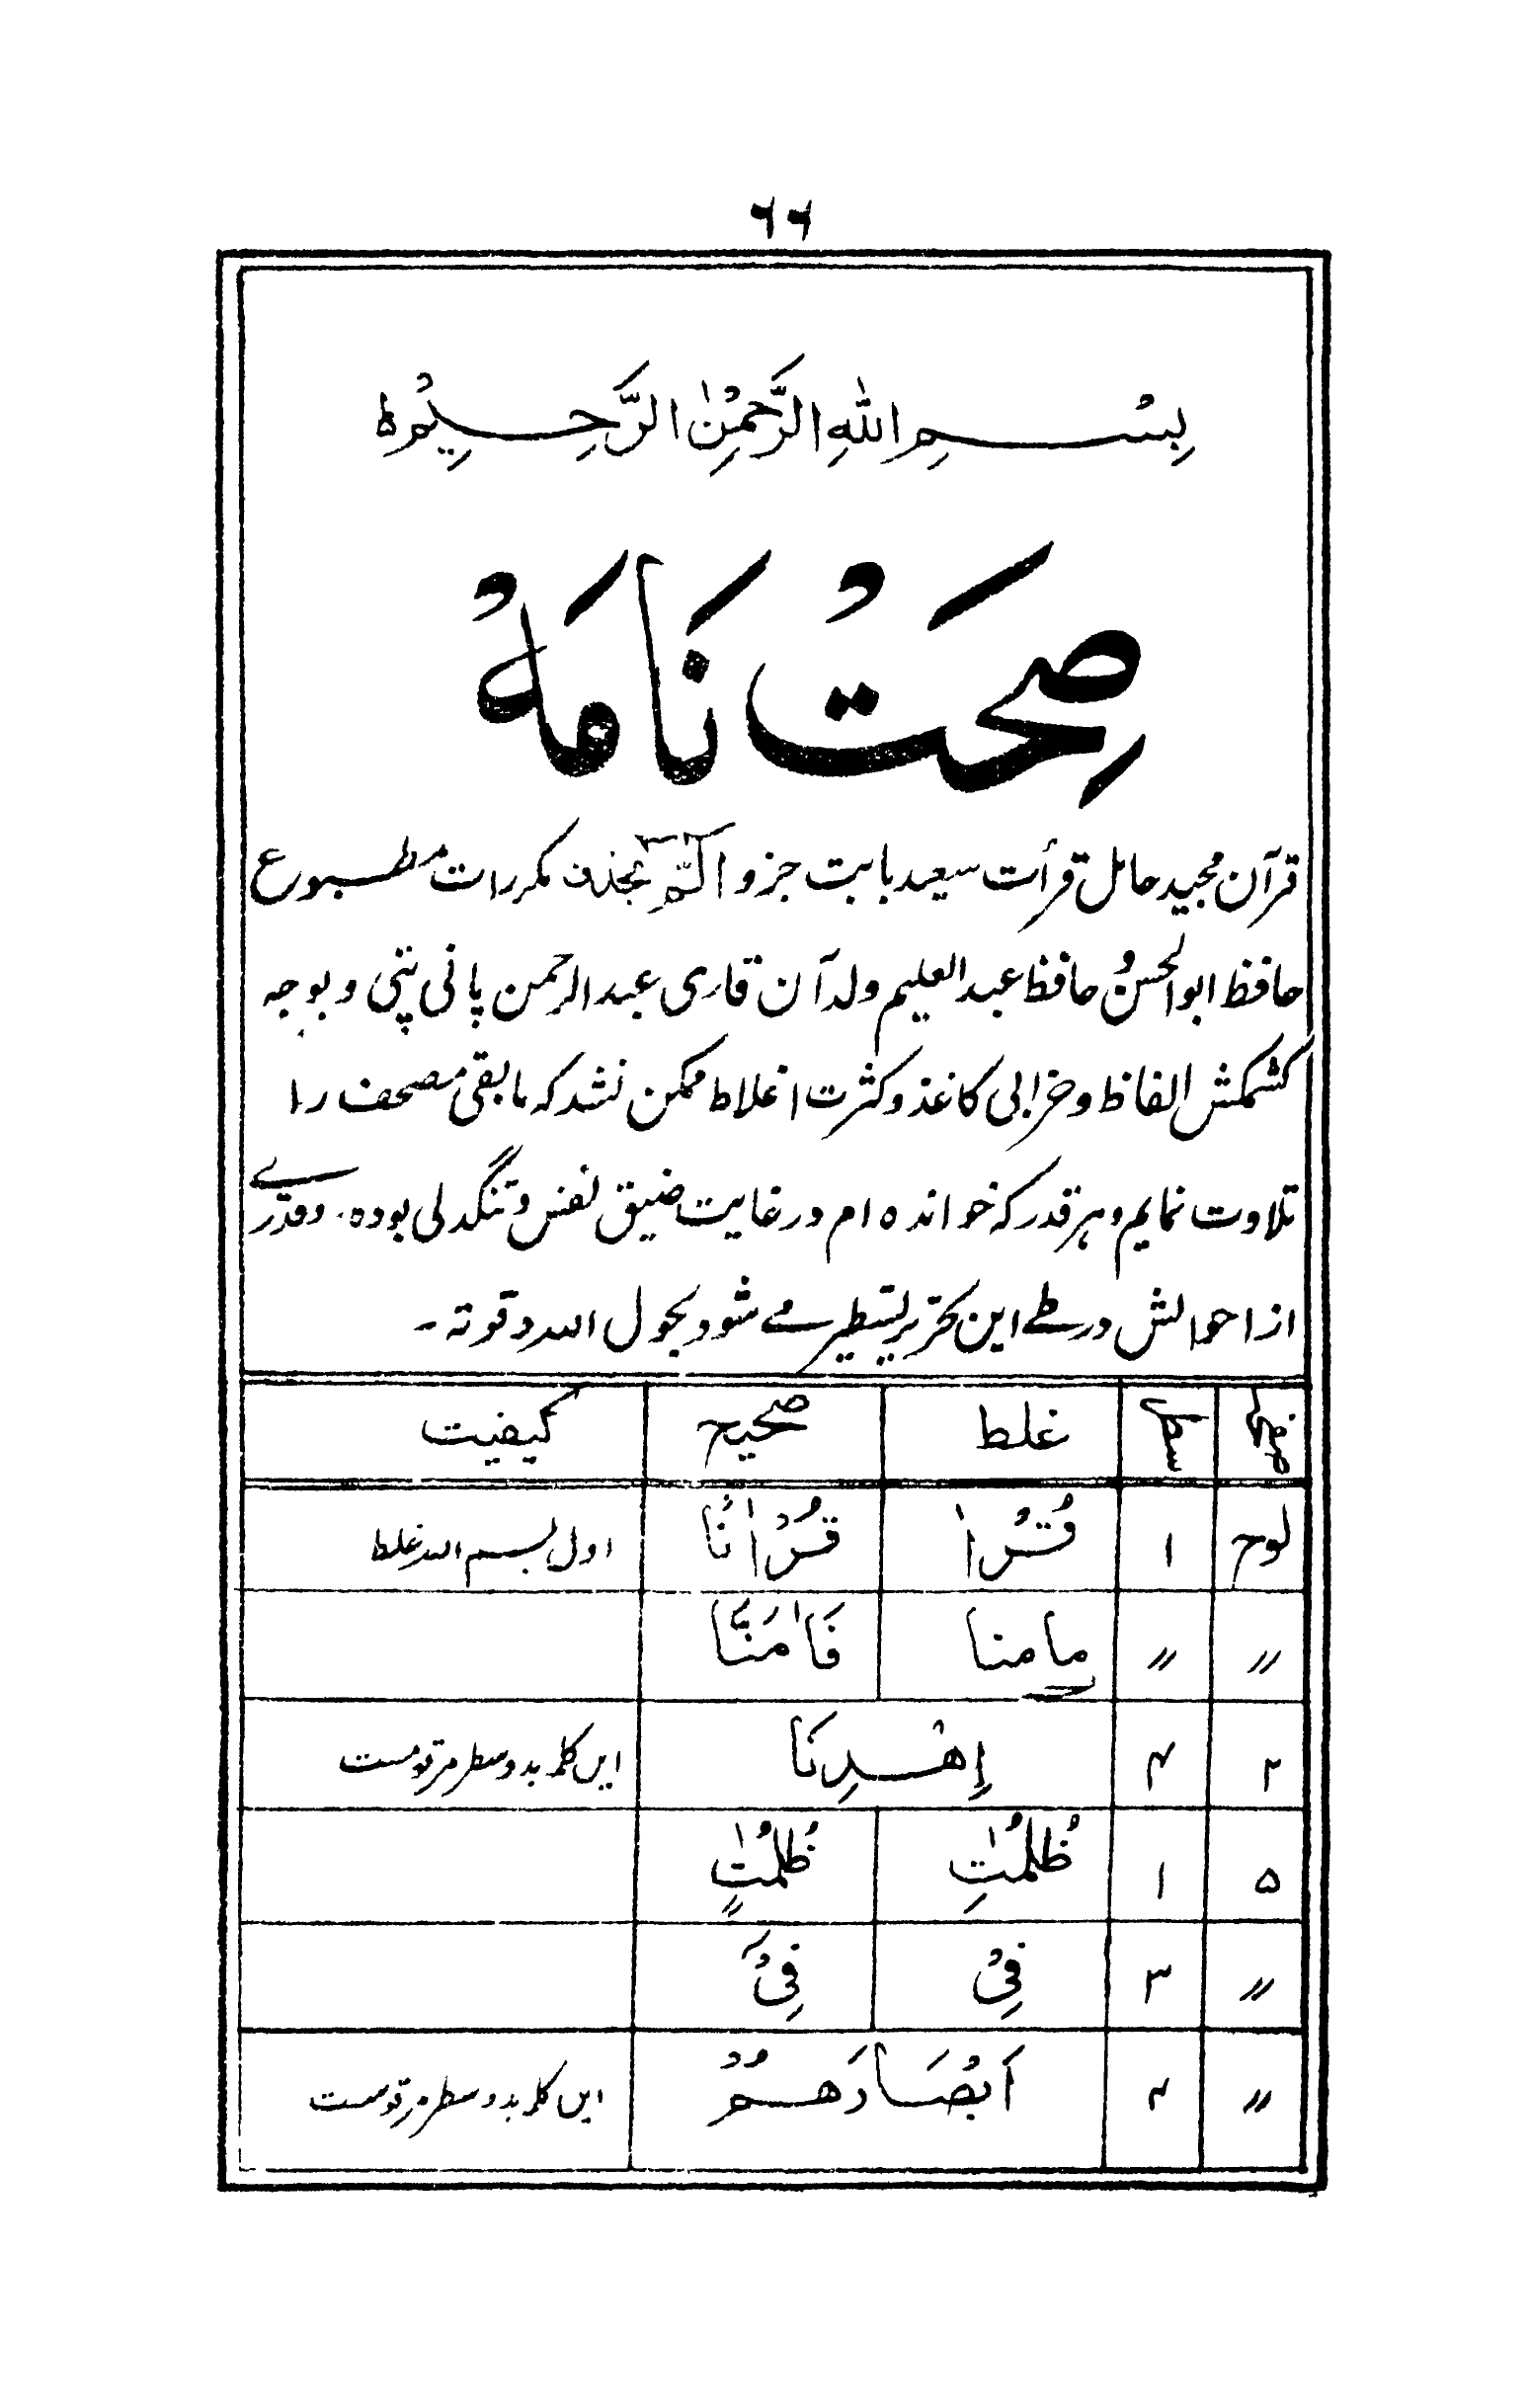 ۶۶
بِسْمِ اللّٰهِ الرَّحْمٰنِ الرَّحِيْمِ ط
صِحَتْ نَامَهْ
قرآن مجید حامل قرأت سعید بابت جزو الٓمّٓ بحذف مکررات مطبوع
حافظ ابوالحسن و حافظ عبدالعلیم ولد آن قاری عبدالرحمن پانی پتی و بوجه
کشمکش الفاظ و خرابی کاغذ و کثرت اغلاط ممکن نشد که مابقی مصحف را
تلاوت نمایم و هر قدر که خوانده ام در غایت ضیق نفس و تنگدلی بوده۔ و قدرے
از احوالش در طے این تحریر تسطیر مے شود بحول الله و قوته ۔
صفحه سطر غلط صحیح کیفیت
لوح ۱ قُرْاٰ قُرْاٰنًا اول بسم الله غلط
〃 〃 مامنا فَاٰمَنَّا
۲ ۴ اِهْدِنَا ایں کلمه بدو سطر مرقومست
۵ ۱ ظُلُمٰتِ ظُلُمٰتٍ
〃 ۳ فِیْ فِیْٓ
〃 ۴ اَبْصَارَهُمْ ایں کلمه بدو سطر مرقومست